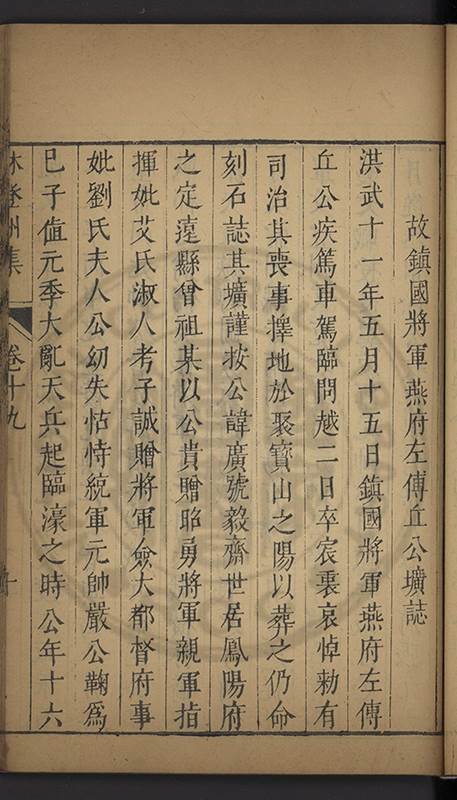 故鎮國將軍燕府左傅丘公壙誌
洪武十一年五月十五日鎮國將軍燕府左傅
丘公疾篤車駕臨問越二日卒宸裏哀悼勅有
司治其喪事擇地於聚寳山之陽以葬之仍命
刻石誌其壙謹按公諱廣號毅齋世居鳳陽府
之定逺縣曾祖某以公貴贈昭勇將軍親軍指
揮妣艾氏淑人考子誠贈將軍僉大都督府事
妣劉氏夫人公幼失怙恃統軍元帥嚴公鞠爲
已子值元季大亂天兵起臨濠之時公年十六
林登州集
卷十九
一